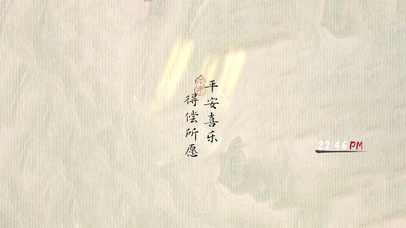 平安喜乐
得偿所愿
22:46 PM